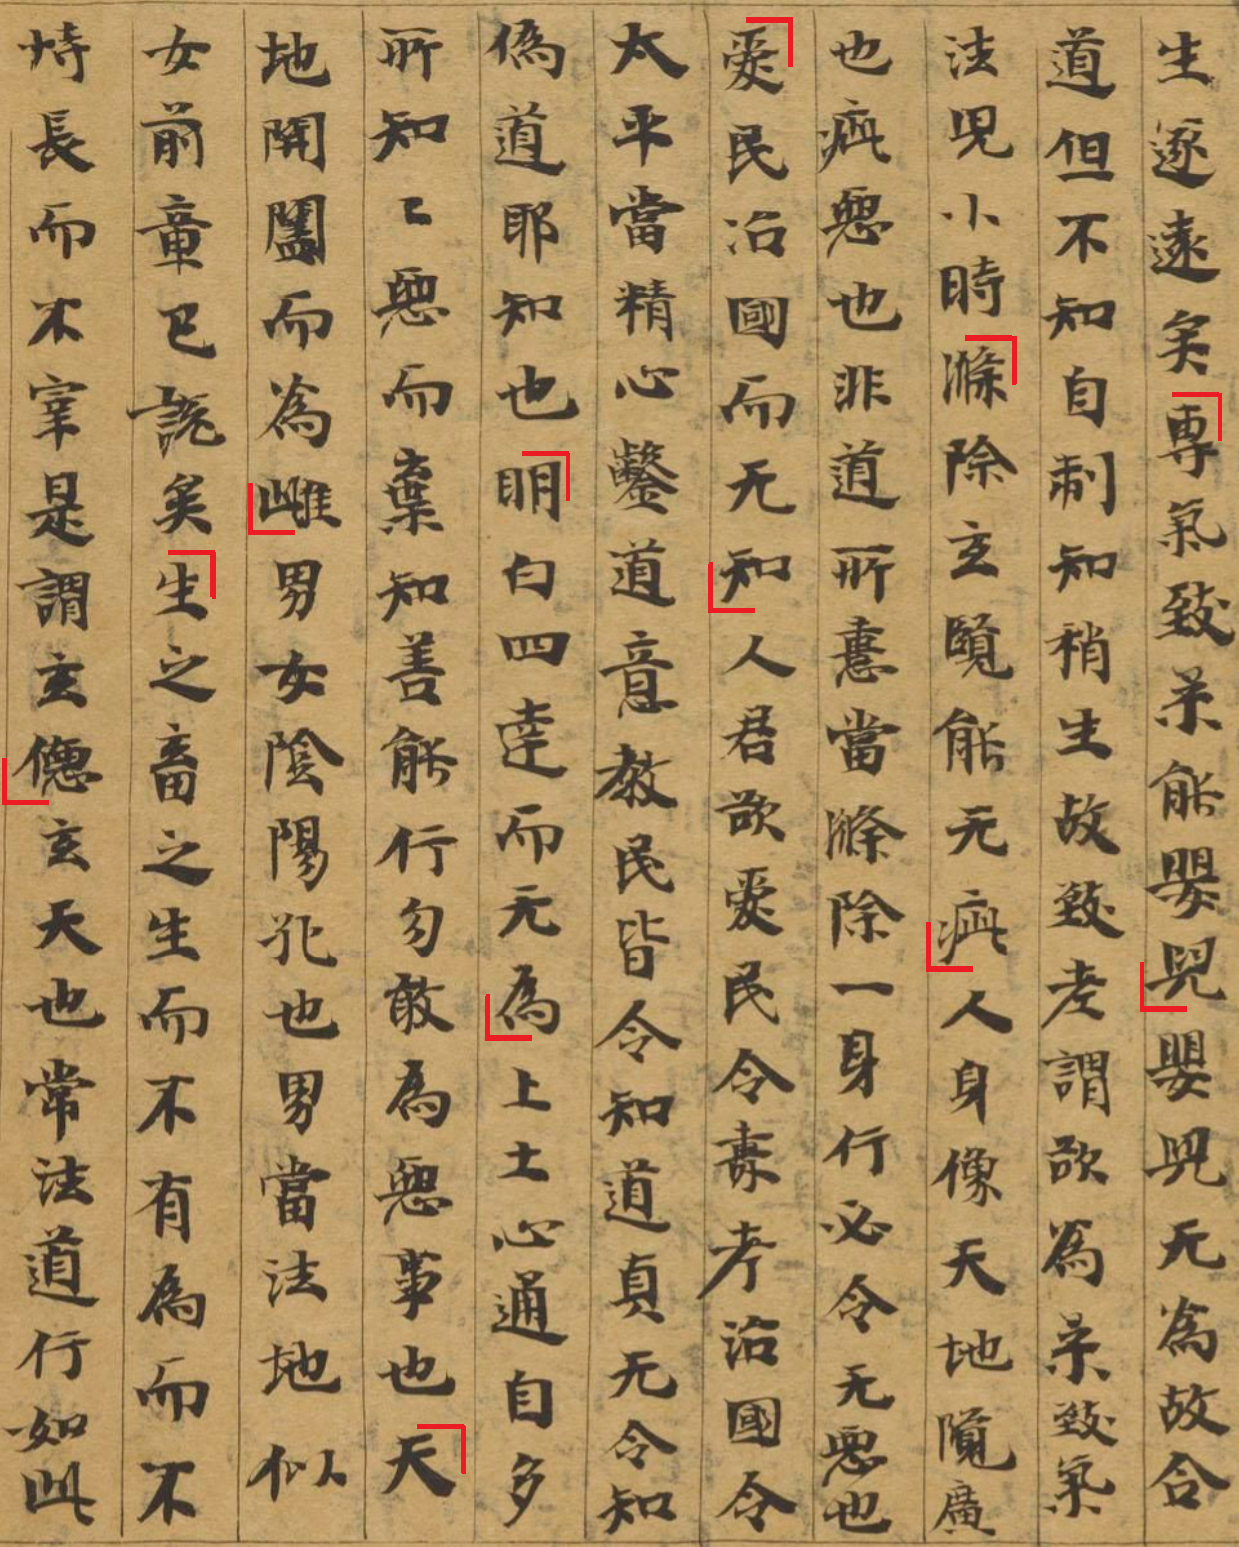 生逐遠矣專氣致柔能嬰兒嬰兒无為故合
道但不知自制知稍生故致老謂欲為柔致氣
法兒小時滌除玄覽能无疵人身像天地覽廣
也疵惡也非道所憙當滌除一身行必令无惡也
愛民治國而无知人君欲愛民令壽考治國令
太平當精心鑿道意教民皆令知道真无令知
偽道耶知也明白四達而无為上士心通自多
所知〻惡而棄知善能行勿敢為惡事也天
地開闔而為雌男女陰陽孔也男當法地似
女前章已說矣生之畜之生而不有為而不
恃長而不宰是謂玄德玄天也常法道行如此